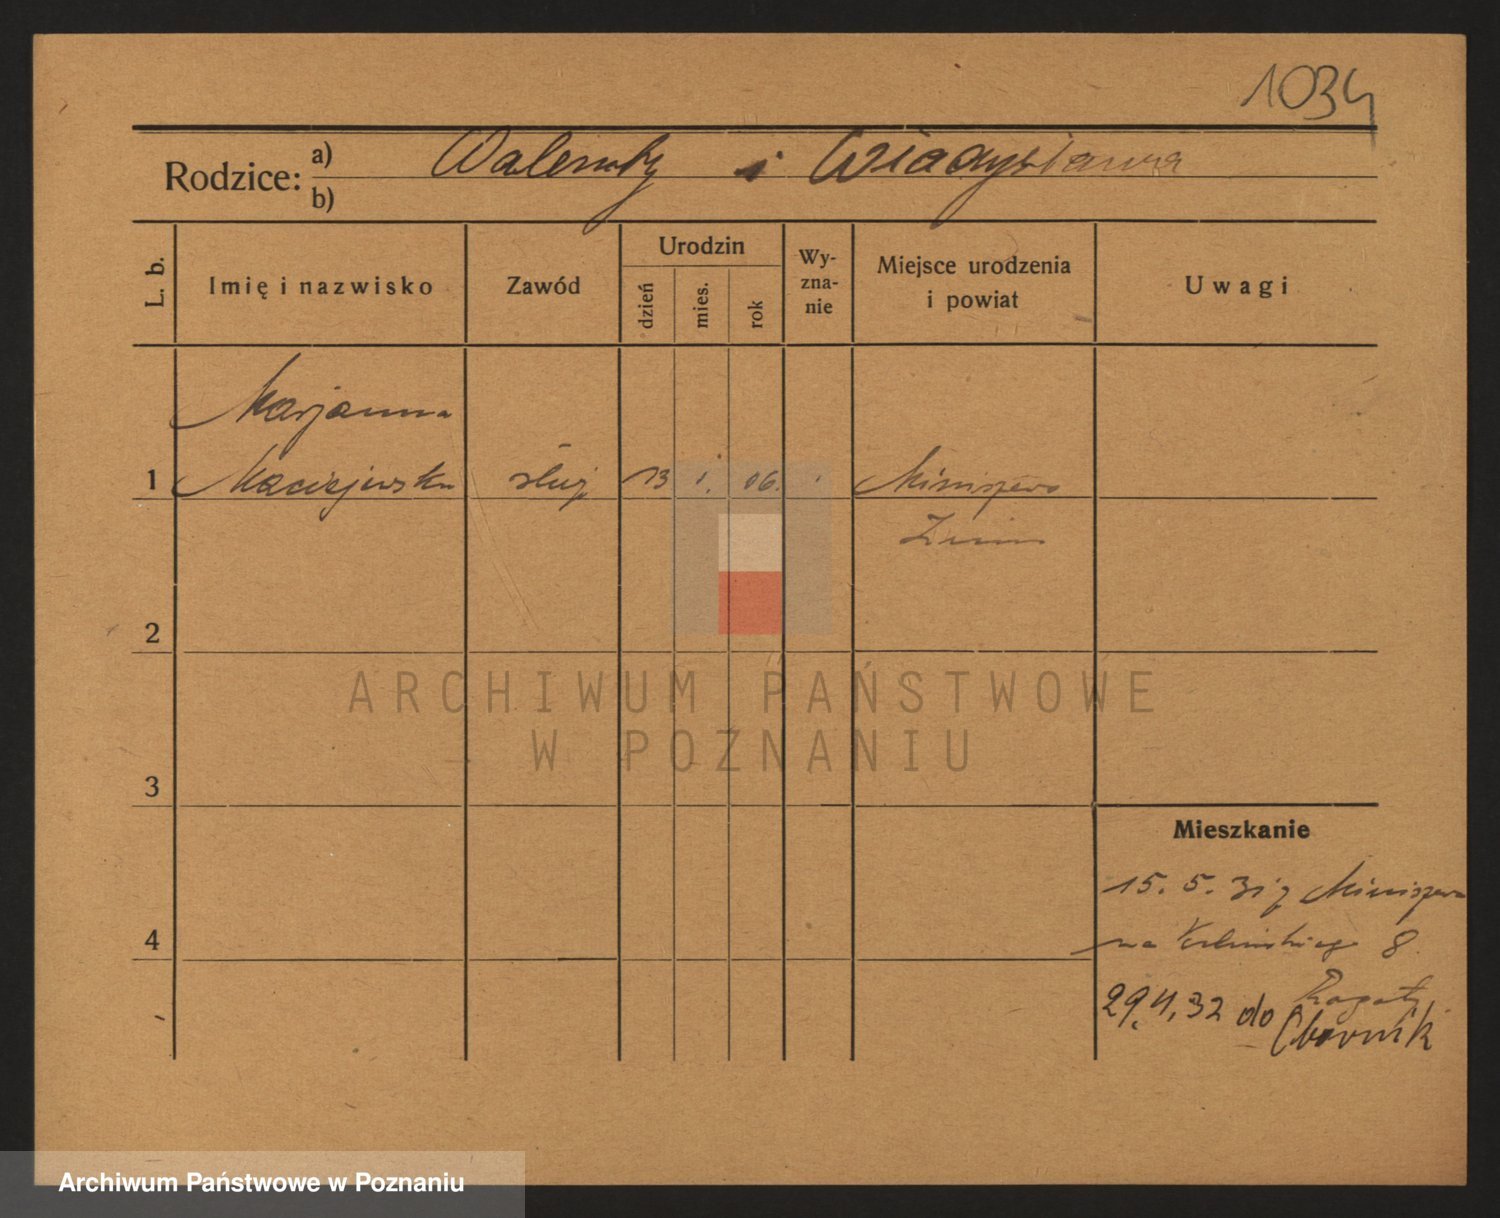 1034
Rodzice: a) Walenty i Władysława
b)
L. b.
Imię i nazwisko
Zawód
Urodzin
dzień
mies.
rok
Wy-
zna-
nie
Miejsce urodzenia
i powiat
Uwagi
Marjanna
1 Maciejewska służ 13 1. 06.
2
ARCHIWUM PAŃSTWOWE
W POZNANIU
3
Mieszkanie
15. 5. 31 z
4
na 8.
29. 4. 32 do
Obornik
Archiwum Państwowe w Poznaniu